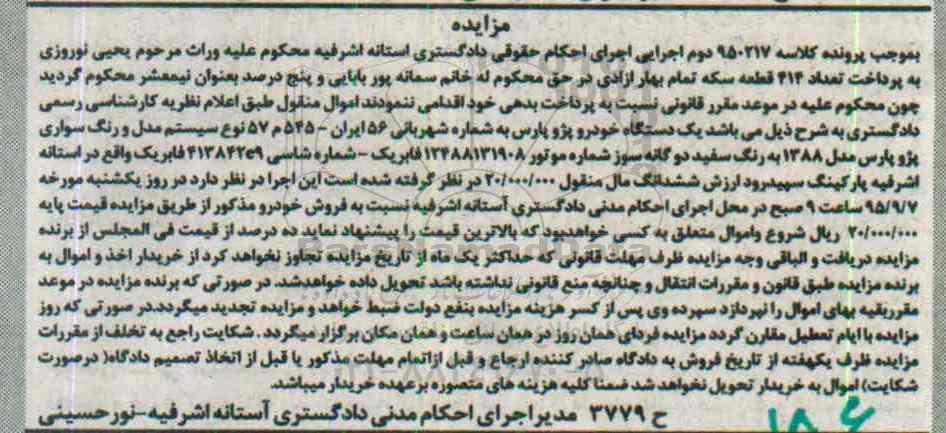 مزایده
بموجب پرونده کلاسه ۹۵۰۲۱۷ دوم اجرایی اجرای احکام حقوقی دادگستری استانه اشرفیه محکوم علیه وراث مرحوم یحیی نوروزی
به پرداخت تعداد ۴۱۴ قطعه سکه تمام بهار ازادی در حق محکوم له خانم سمانه پور بابایی و پنج درصد بعنوان نیمعشر محکوم گردید
چون محکوم علیه در موعد مقرر قانونی نسبت به پرداخت بدهی خود اقدامی ننمودند اموال منقول طبق اعلام نظریه کارشناسی رسمی
دادگستری به شرح ذیل می باشد یک دستگاه خودرو پژو پارس به شماره شهربانی ۵۶ ایران - ۵۴۵ م ۵۷ نوع سیستم مدل و رنگ سواری
پژو پارس مدل ۱۳۸۸ به رنگ سفید دو گانه سوز شماره موتور ۱۲۴۸۸۱۳۱۹۰۸ فابریک - شماره شاسی ۴۱۳۸۴۲e۹ فابریک واقع در استانه
اشرفیه پارکینگ سپیدرود ارزش ششدانگ مال منقول ۲۰/۰۰۰/۰۰۰ در نظر گرفته شده است این اجرا در نظر دارد در روز یکشنبه مورخه
۹۵/۹/۷ ساعت ۹ صبح در محل اجرای احکام مدنی دادگستری آستانه اشرفیه نسبت به فروش خودرو مذکور از طریق مزایده قیمت پایه
۲۰/۰۰۰/۰۰۰ ریال شروع واموال متعلق به کسی خواهدبود که بالاترین قیمت را پیشنهاد نماید ده درصد از قیمت فی المجلس از برنده
مزایده دریافت و الباقی وجه مزایده ظرف مهلت قانونی که حداکثر یک ماه از تاریخ مزایده تجاوز نخواهد کرد از خریدار اخذ و اموال به
برنده مزایده طبق قانون و مقررات انتقال و چنانچه منع قانونی نداشته باشد تحویل داده خواهدشد. در صورتی که برنده مزایده در موعد
مقرربقیه بهای اموال را نپردازد سپرده وی پس از کسر هزینه مزایده بنفع دولت ضبط خواهد و مزایده تجدید میگردد.در صورتی که روز
مزایده با ایام تعطیل مقارن گردد مزایده فردای همان روز در همان ساعت و همان مکان برگزار میگردد. شکایت راجع به تخلف از مقررات
مزایده ظرف یکهفته از تاریخ فروش به دادگاه صادر کننده ارجاع و قبل ازاتمام مهلت مذکور یا قبل از اتخاذ تصمیم دادگاه( درصورت
شکایت) اموال به خریدار تحویل نخواهد شد ضمنا کلیه هزینه های متصوره برعهده خریدار میباشد.
ح ۳۷۷۹ مدیر اجرای احکام مدنی دادگستری آستانه اشرفیه-نورحسینی